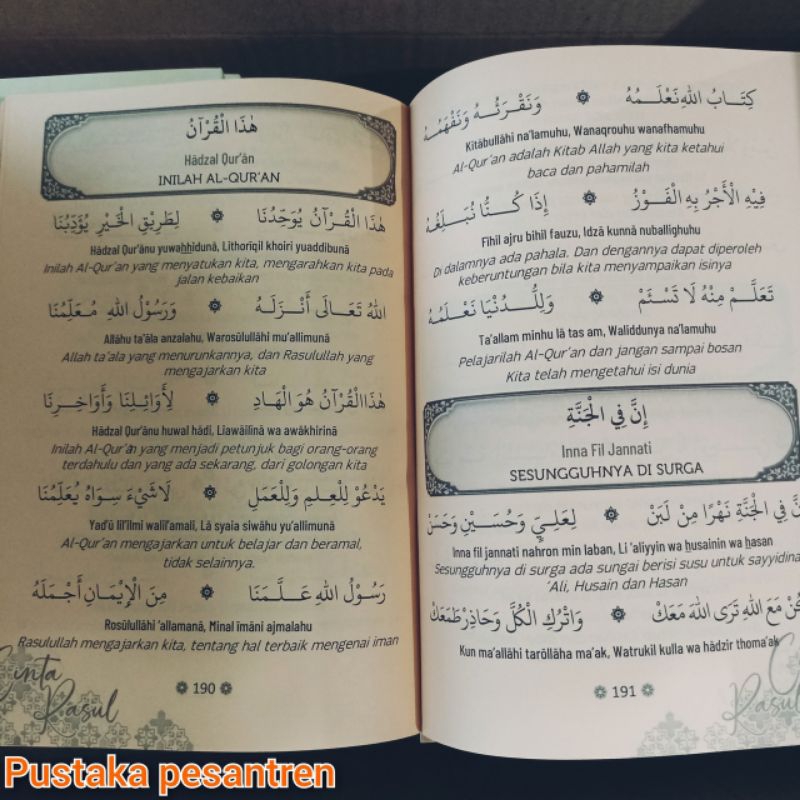 هٰذَا الْقُرْآنُ
Hādzal Qur'ān
INILAH AL-QUR'AN
هٰذَا الْقُرْآنُ يُوَحِّدُنَا ۞ لِطَرِيْقِ الْخَيْرِ يُؤَدِّبُنَا
Hādzal Qur'ānu yuwahhidunā, Lithorīqil khoiri yuaddibunā
Inilah Al-Qur'an yang menyatukan kita, mengarahkan kita pada
jalan kebaikan
اللهُ تَعَالَى أَنْزَلَهُ ۞ وَرَسُوْلُ اللهِ مُعَلِّمُنَا
Allāhu ta'āla anzalahu, Warosūlullāhi mu'allimunā
Allah ta'ala yang menurunkannya, dan Rasulullah yang
mengajarkan kita
هٰذَاالْقُرْآنُ هُوَ الْهَادِ ۞ لِأَوَائِلِنَا وَأَوَاخِرِنَا
Hādzal Qur'ānu huwal hādi, Liawāilinā wa awākhirinā
Inilah Al-Qur'an yang menjadi petunjuk bagi orang-orang
terdahulu dan yang ada sekarang, dari golongan kita
يَدْعُوْ لِلْعِلْمِ وَلِلْعَمَلِ ۞ لَا شَيْءَ سِوَاهُ يُعَلِّمُنَا
Yad'ū lil'ilmi walil'amali, Lā syaia siwāhu yu'allimunā
Al-Qur'an mengajarkan untuk belajar dan beramal,
tidak selainnya.
رَسُوْلُ اللهِ عَلَّمَنَا ۞ مِنَ الْإِيْمَانِ أَجْمَلَهُ
Rosūlullāhi 'allamanā, Minal īmāni ajmalahu
Rasulullah mengajarkan kita, tentang hal terbaik mengenai iman
Cinta
Rasul
190
كِتَابُ اللهِ نَعْلَمُهُ ۞ وَنَقْرَئُهُ وَنَفْهَمُهُ
Kitābullāhi na'lamuhu, Wanaqrouhu wanafhamuhu
Al-Qur'an adalah Kitab Allah yang kita ketahui
baca dan pahamilah
فِيْهِ الْأَجْرُ بِهِ الْفَوْزُ ۞ إِذَا كُنَّا نُبَلِّغُهُ
Fīhil ajru bihil fauzu, Idzā kunnā nuballighuhu
Di dalamnya ada pahala. Dan dengannya dapat diperoleh
keberuntungan bila kita menyampaikan isinya
تَعَلَّمْ مِنْهُ لَا تَسْئَمْ ۞ وَلِلدُّنْيَا نَعْلَمُهُ
Ta'allam minhu lā tas am, Waliddunya na'lamuhu
Pelajarilah Al-Qur'an dan jangan sampai bosan
Kita telah mengetahui isi dunia
إِنَّ فِي الْجَنَّةِ
Inna Fil Jannati
SESUNGGUHNYA DI SURGA
فِي الْجَنَّةِ نَهْرًا مِنْ لَبَنْ ۞ لِعَلِيٍّ وَحُسَيْنٍ وَحَسَنْ
Inna fil jannati nahron min laban, Li 'aliyyin wa husainin wa hasan
Sesungguhnya di surga ada sungai berisi susu untuk sayyidina
'Ali, Husain dan Hasan
مَعَ اللهِ تَرَى اللهَ مَعَكْ ۞ وَاتْرُكِ الْكُلَّ وَحَاذِرْ طَمَعَكْ
Kun ma'allāhi tarōllāha ma'ak, Watrukil kulla wa hādzir thoma'ak
191
Pustaka pesantren